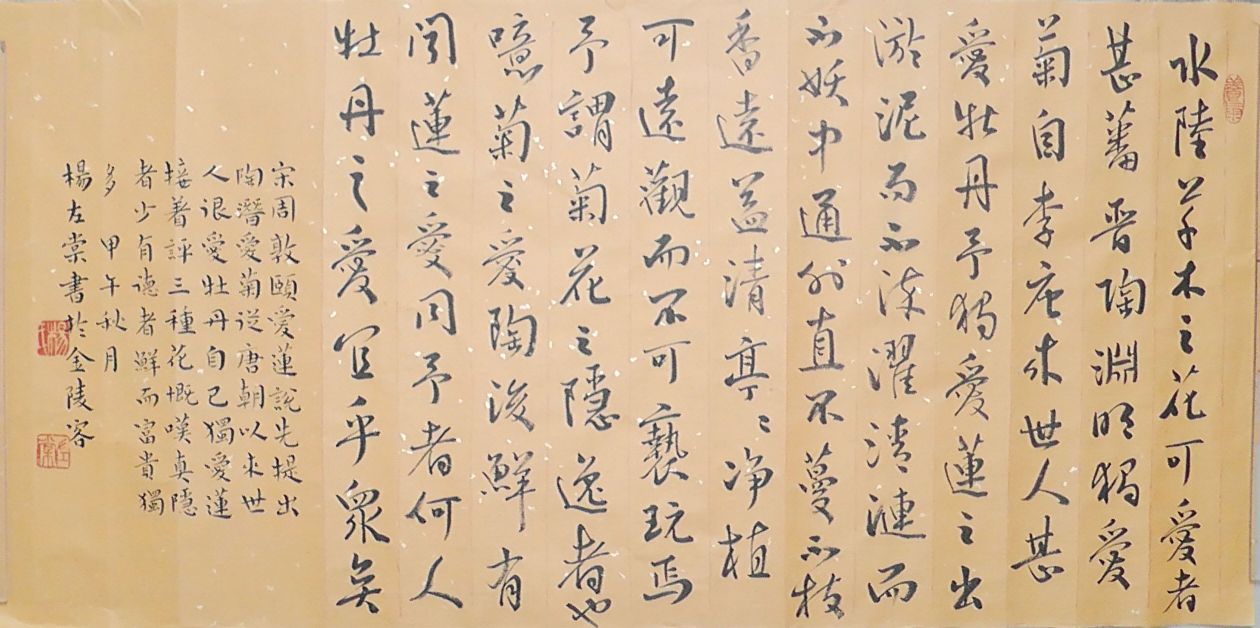 水陸草木之花可愛者
甚蕃晉陶淵明獨愛
菊自李唐來世人甚
愛牡丹予獨愛蓮之出
淤泥而不染濯清漣而
不妖中通外直不蔓不枝
香遠益清亭〻净植
可遠觀而不可褻玩焉
予謂菊花之隱逸者也
噫菊之愛陶後鮮有
聞蓮之愛同予者何人
牡丹之愛宜乎眾矣
宋周敦頤愛蓮說先提出
陶潛愛菊從唐朝以來世
人很愛牡丹自己獨愛蓮
接着評三種花慨嘆真隱
者少有德者鮮而富貴獨
多 甲午秋月
楊左棠書於金陵客